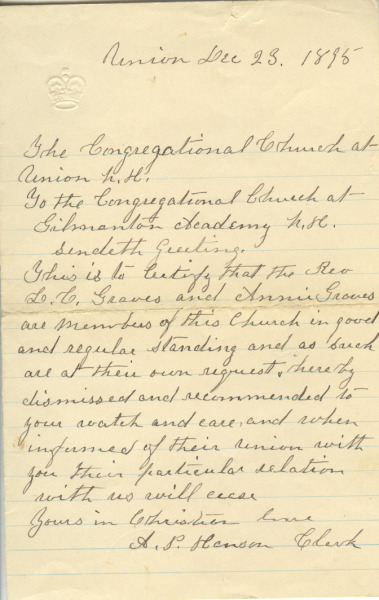 Union Dec 23. 1895
The Congregational Church at
Union N.H.
To the Congregational Church at
Gilmanton Academy N.H.
Sendeth Greeting.
This is to Certify that the Rev
L. C. Graves and Annie Graves
are members of this Church in good
and regular standing and as such
are at their own request, hereby
dismissed and recommended to
your watch and care, and when
informed of their union with
you their particular relation
with us will cease
Yours in Christian love
A. P. Henson Clerk